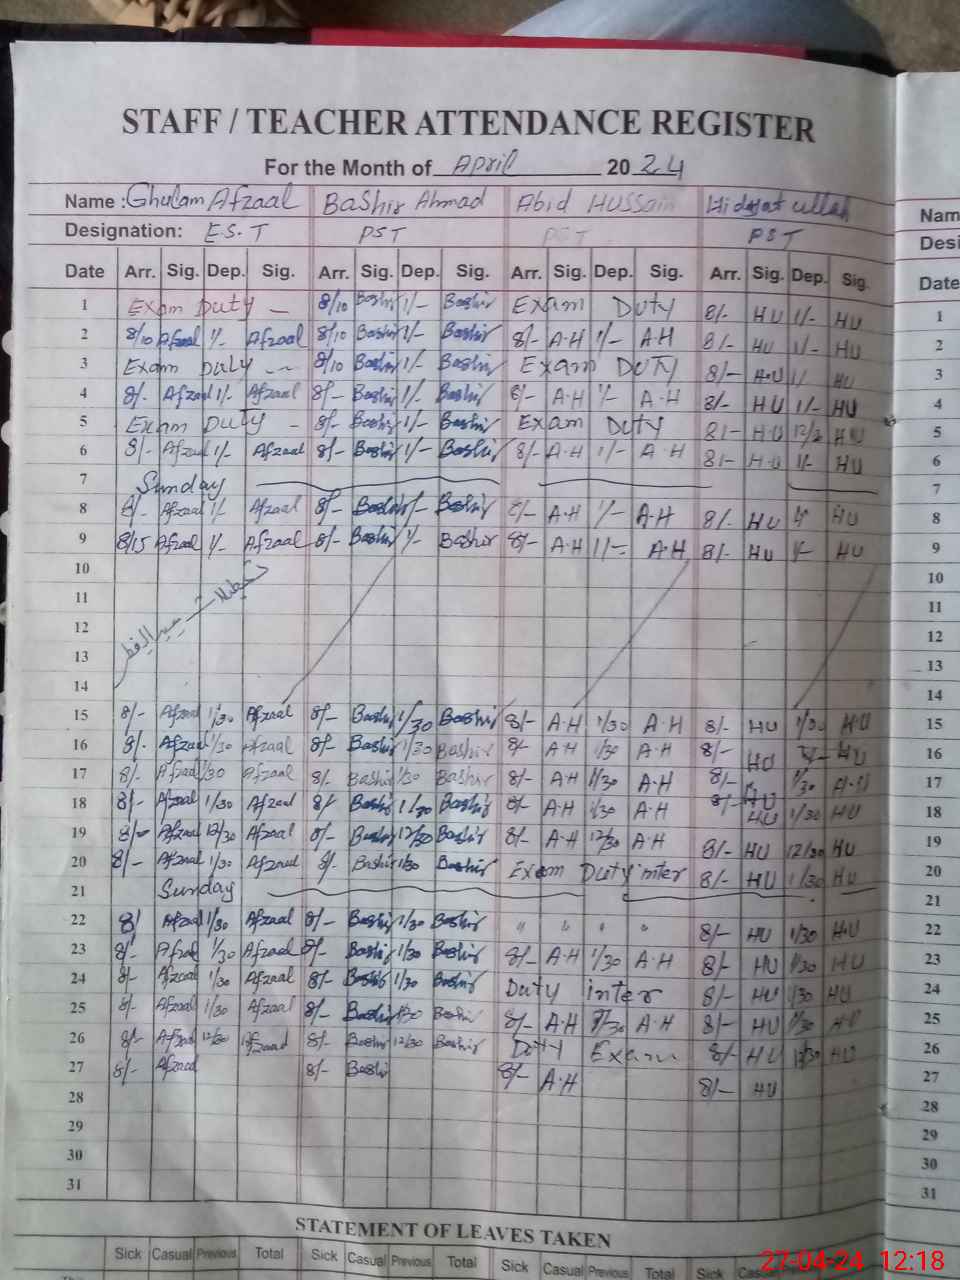 STAFF / TEACHER ATTENDANCE REGISTER
For the Month of April 2024
Name : Ghulam Afzaal Bashir Ahmad Abid Hussain Hidayat ullah Nam
Designation: E.S.T PST PST PST Desi
Date Arr. Sig. Dep. Sig. Arr. Sig. Dep. Sig. Arr. Sig. Dep. Sig. Arr. Sig. Dep. Sig. Date
1 Exam Duty 8/10 Bashir 1/- Bashir Exam Duty 8/- HU 1/- HU 1
2 8/10 Afzaal 1/- Afzaal 8/10 Bashir 1/- Bashir 8/- A-H 1/- A-H 8/- HU 1/- HU 2
3 Exam Duty 8/10 Bashir 1/- Bashir Exam Duty 8/- H-U 1/ HU 3
4 8/- Afzaal 1/- Afzaal 8/- Bashir 1/- Bashir 8/- A-H 1/- A-H 8/- HU 1/- HU 4
5 Exam Duty 8/- Bashir 1/- Bashir Exam Duty 8/- H-U HU 5
6 8/- Afzaal 1/- Afzaal 8/- Bashir 1/- Bashir 8/- A-H 1/- A-H 8/- H-U 1/- HU 6
7 Sunday 7
8 8/- Afzaal 1/- Afzaal 8/- Bashir 1/- Bashir 8/- A-H 1/- A-H 8/- HU HU 8
9 8/15 Afzaal 1/- Afzaal 8/- Bashir 1/- Bashir 8/- A-H 1/- A-H 8/- HU 1/- HU 9
10 10
11 11
12 12
13 13
14 14
15 8/- Afzaal 1/30 Afzaal 8/- Bashir 1/30 Bashir 8/- A-H 1/30 A-H 8/- HU 1/30 H-U 15
16 8/- Afzaal 1/30 Afzaal 8/- Bashir 1/30 Bashir 8/- AH 1/30 A-H 8/- HU HU 16
17 8/- Afzaal 1/30 Afzaal 8/- Bashir 1/30 Bashir 8/- A-H 1/30 A-H 8/- HU 1/30 17
18 8/- Afzaal 1/30 Afzaal 8/- Bashir 1/30 Bashir 8/- A-H 1/30 A-H 8/- HU 1/30 HU 18
19 8/- Afzaal 12/30 Afzaal 8/- Bashir 12/30 Bashir 8/- A-H 12/30 A-H 8/- HU 12/30 HU 19
20 8/- Afzaal 1/30 Afzaal 8/- Bashir 1/30 Bashir Exam Duty inter 8/- HU 1/30 HU 20
21 Sunday 21
22 8/ Afzaal 1/30 Afzaal 8/- Bashir 1/30 Bashir " " " " 8/- HU 1/30 H-U 22
23 8/- Afzaal 1/30 Afzaal 8/- Bashir 1/30 Bashir 8/- A-H 1/30 A-H 8/- HU 1/30 HU 23
24 8/- Afzaal 1/30 Afzaal 8/- Bashir 1/30 Bashir Duty inter 8/- HU 1/30 HU 24
25 8/- Afzaal 1/30 Afzaal 8/- Bashir 1/30 Bashir 8/- A-H 1/30 A-H 8/- HU 1/30 HU 25
26 8/- Afzaal 12/30 Afzaal 8/- Bashir 12/30 Bashir Duty Exam 8/- HU 12/30 HU 26
27 8/- Afzaal 8/- Bashir 8/- A-H 8/- HU 27
28 28
29 29
30 30
31 31
STATEMENT OF LEAVES TAKEN
Sick Casual Previous Total Sick Casual Previous Total Sick Casual Previous Total Sick
27-04-24 12:18